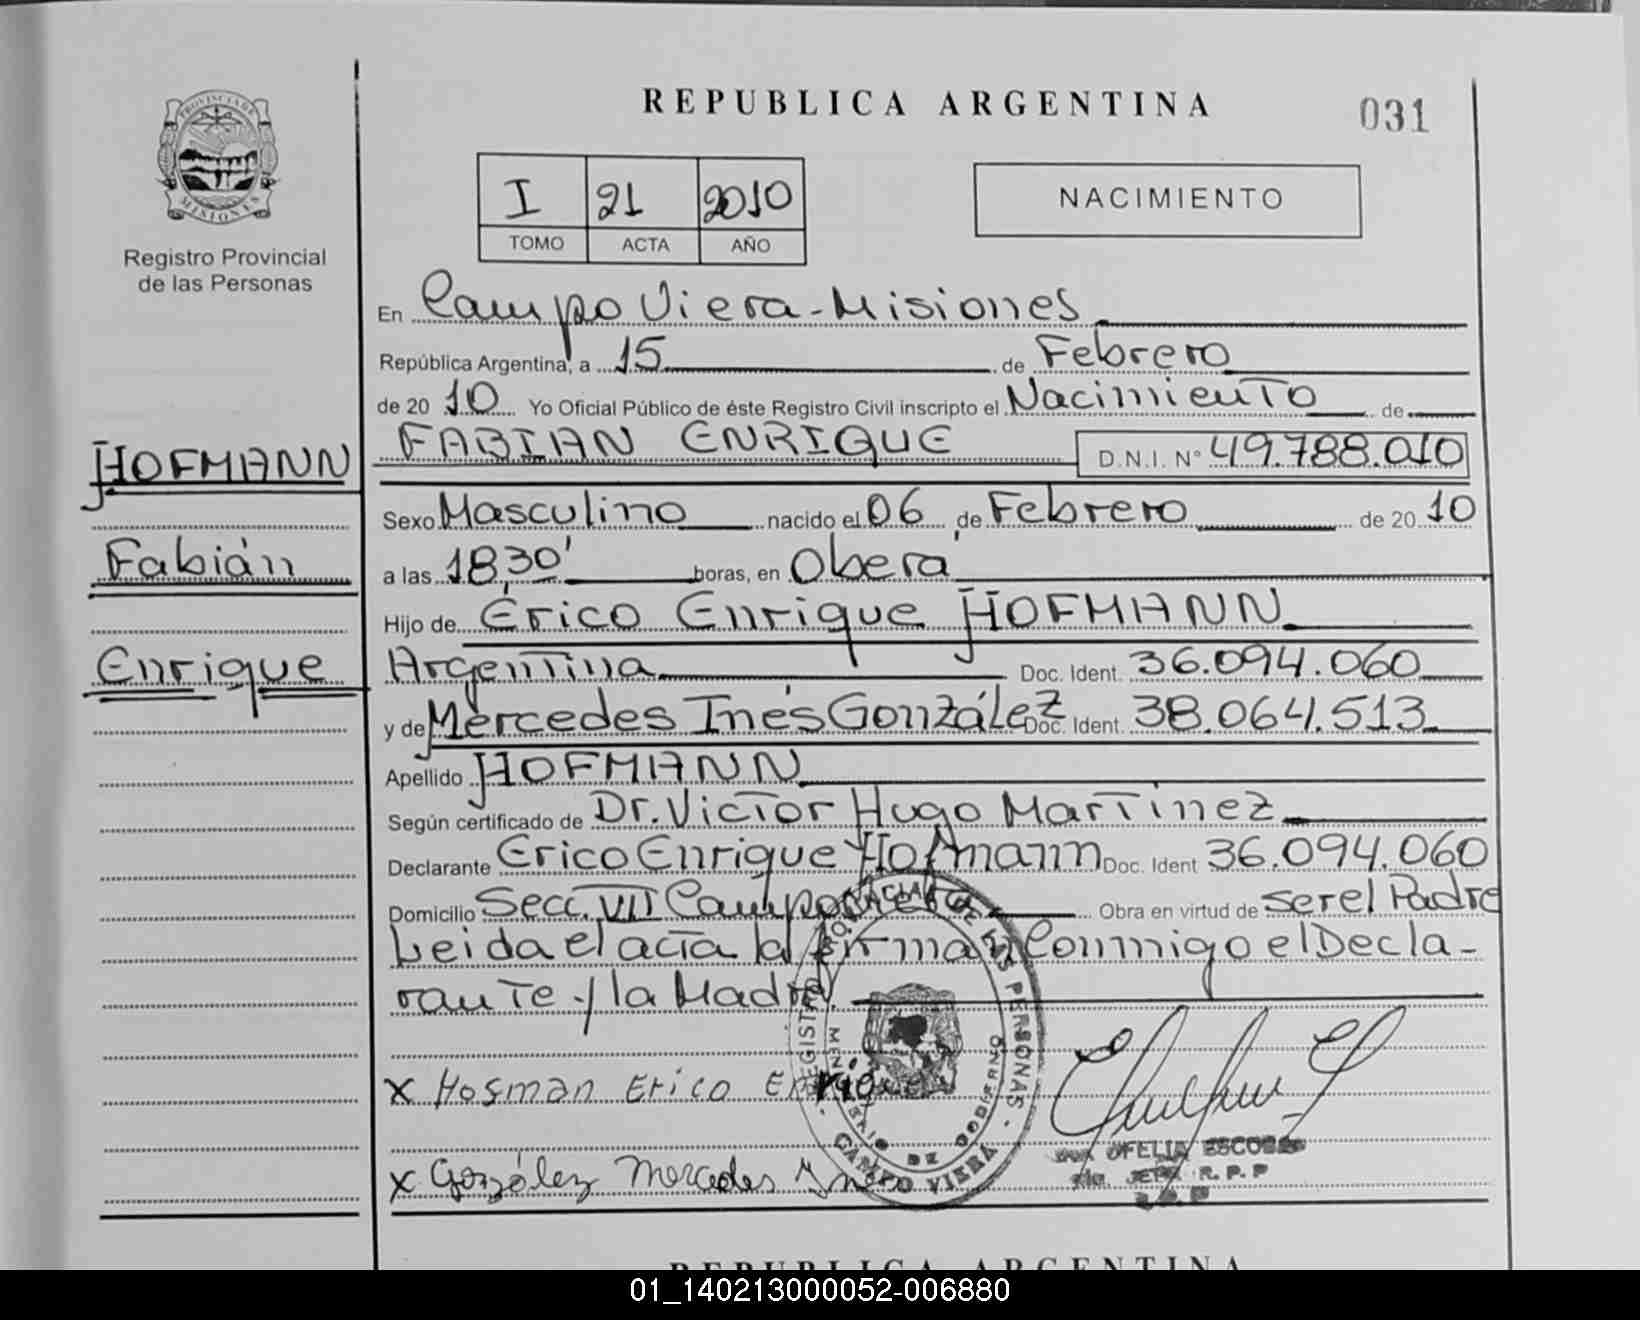 REPUBLICA ARGENTINA
031
PROVINCIA DE
MISIONES
Registro Provincial
de las Personas
I 21 2010
TOMO ACTA AÑO
NACIMIENTO
En Campo Viera-Misiones
República Argentina, a 15 de Febrero
de 20 10 Yo Oficial Público de éste Registro Civil inscripto el Nacimiento de
FABIAN ENRIQUE D.N.I. N° 49.788.010
HOFMANN
Fabián
Enrique
Sexo Masculino nacido el 06 de Febrero de 20 10
a las 18,30' horas, en Oberá
Hijo de Érico Enrique HOFMANN
Argentina Doc. Ident. 36.094.060
y de Mercedes Inés González Doc. Ident. 38.064.513
Apellido HOFMANN
Según certificado de Dr. Victor Hugo Martinez
Declarante Erico Enrique Hofmann Doc. Ident 36.094.060
Domicilio Secc. VII Campo Obra en virtud de ser el Padre
Leida el acta la firman Conmigo el Decla-
rante y la Madre.
x Hofman Erico Enrique
x González Mercedes Inés
REGISTRO PROVINCIAL DE LAS PERSONAS
MINISTERIO DE GOBIERNO
CAMPO VIERA
OFELIA ESCOBAR
JEFE R.P.P
REPUBLICA ARGENTINA
01_140213000052-006880